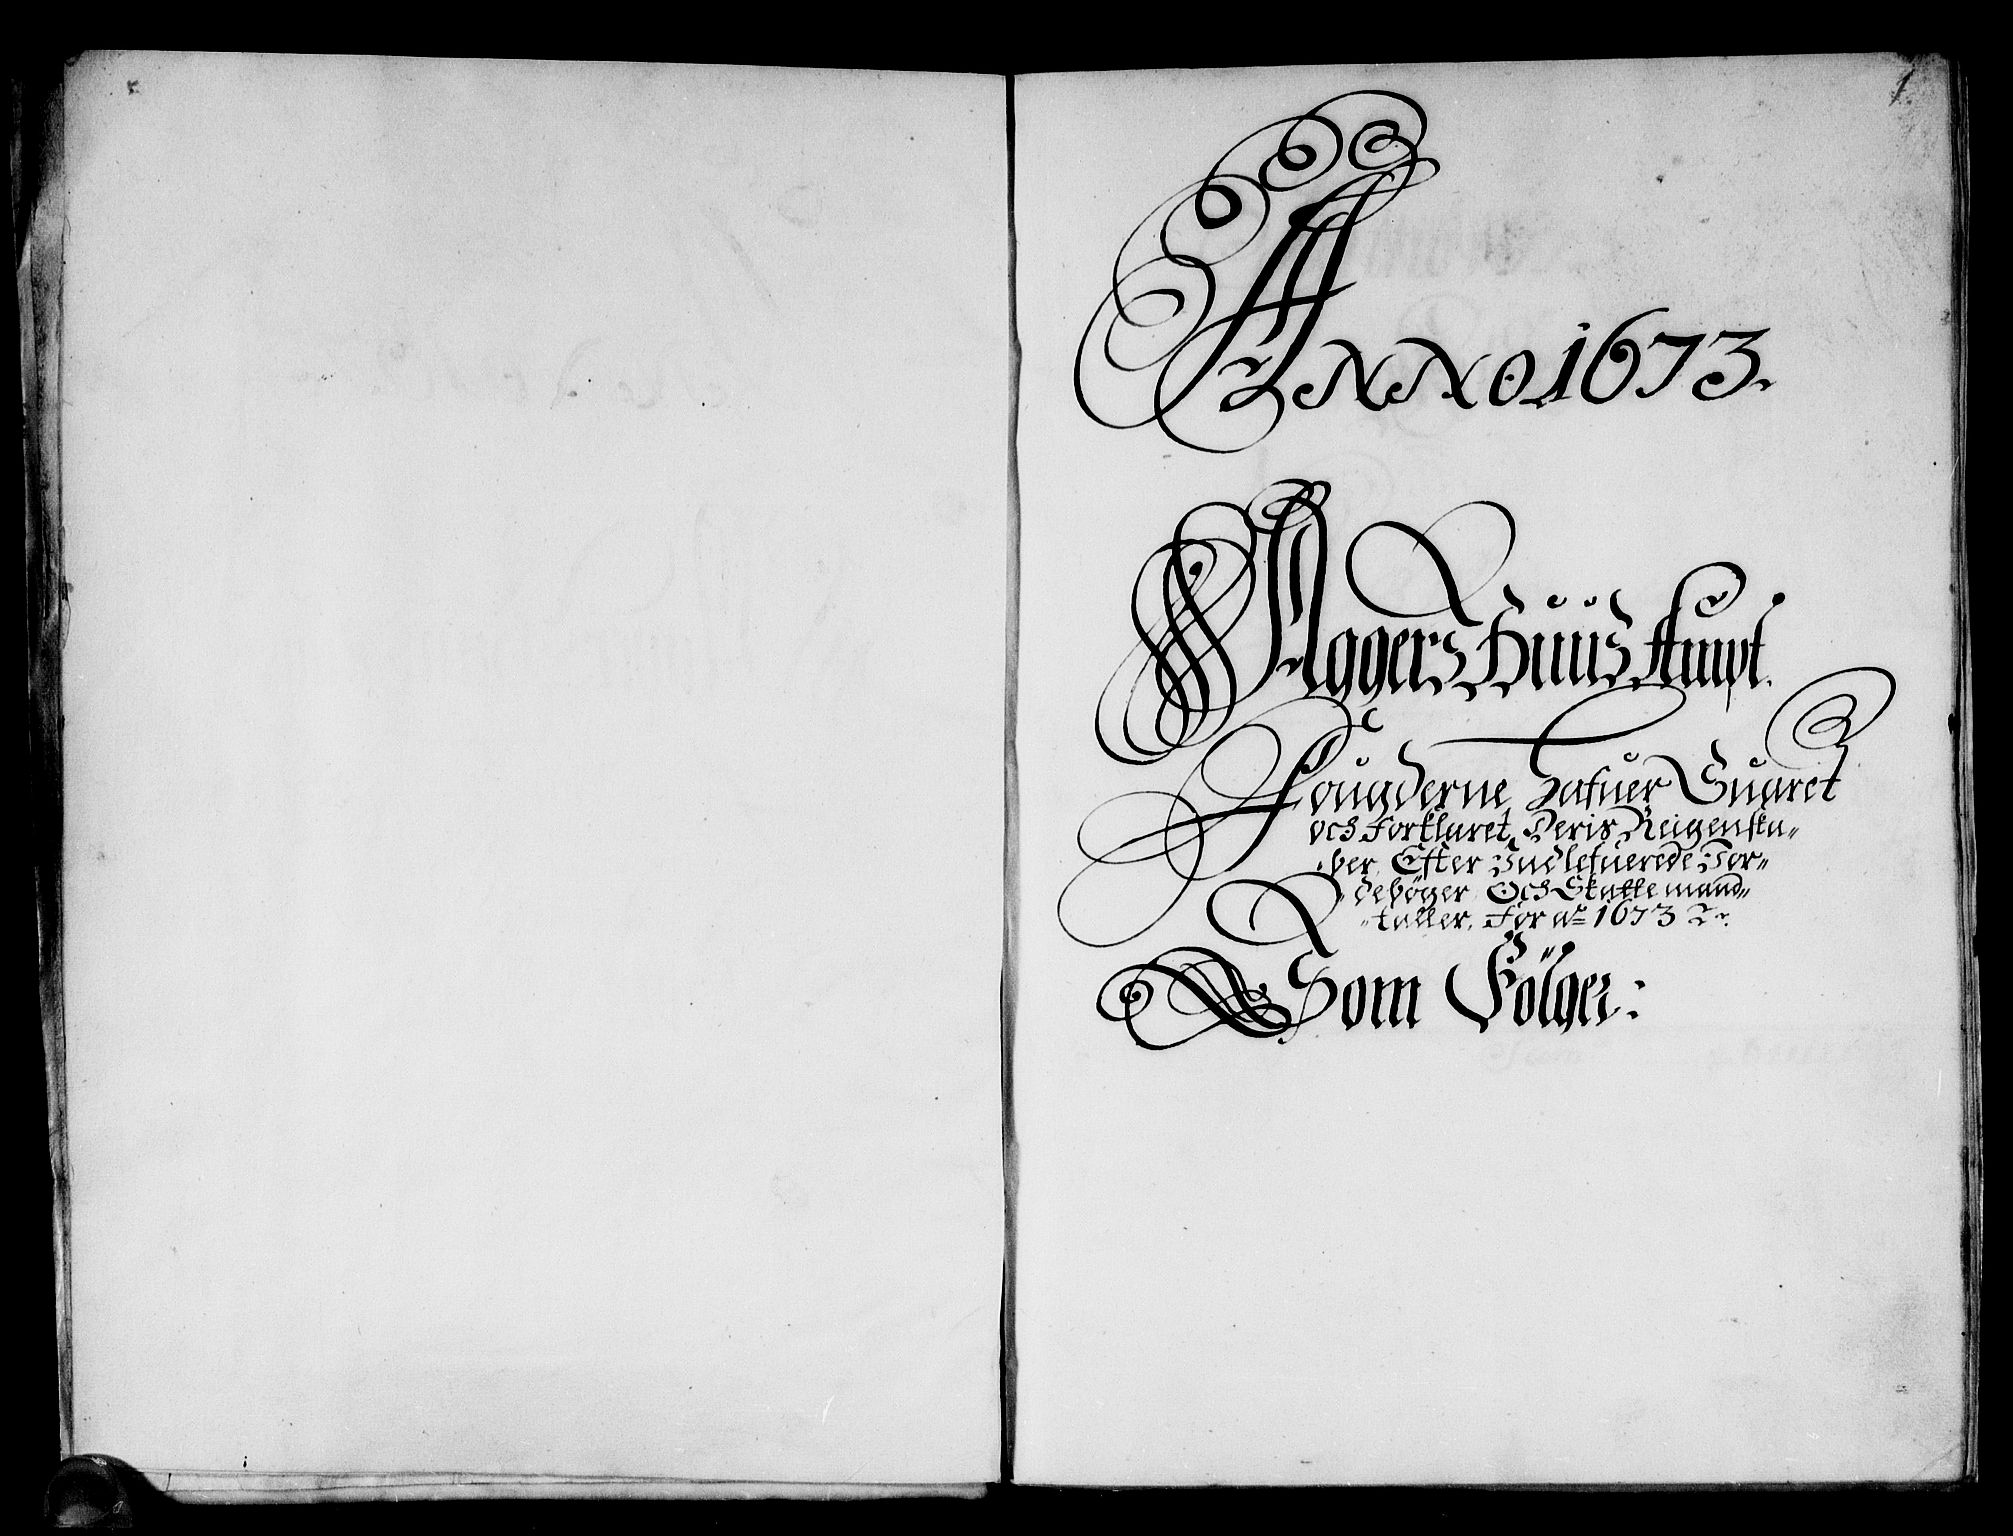 1
Anno 1673.
AggersHuus Ampt.
Fougderne Hafuer Suaret
och Forklaret, Deris Reigenska„
„ber, Efter Indlefuerede Jor„
„debøger Och Skattemand„
„taller, For aº 1673
Som Fölger: